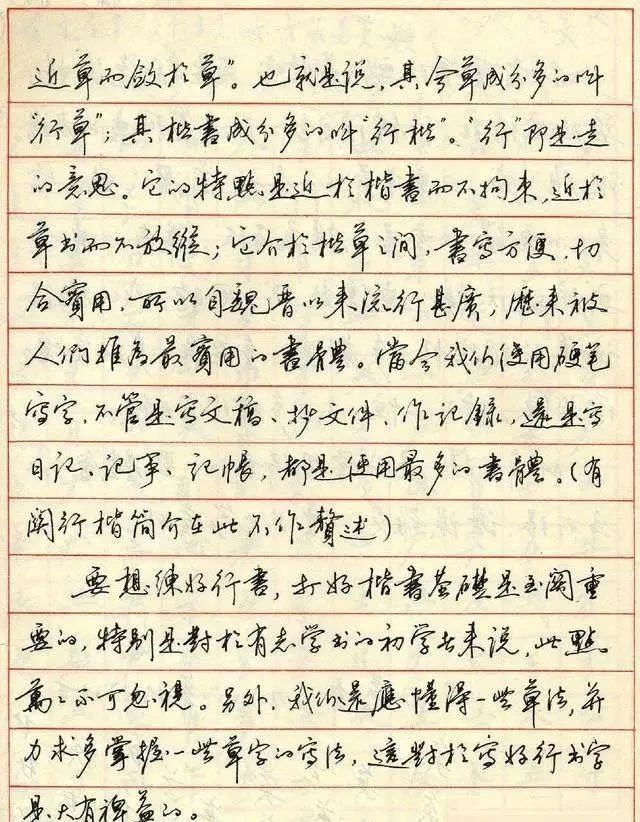 近草而斂於草”。也就是説,其含草成分多的叫
“行草”;其楷書成分多的叫“行楷”。“行”即是走
的意思。它的特點是近於楷書而不拘束,近於
草书而不放縱;它介於楷草之间,書写方便,切
合實用,所以自魏晋以来流行甚廣,歷来被
人们推為最實用的書體。當今我们使用硬笔
寫字,不管是寫文稿、抄文件、作記錄,還是寫
日記、記事、記帳,都是使用最多的書體。(有
関行楷简介在此不作贅述)
要想練好行書,打好楷書基礎是至関重
要的,特别是對於有志学书的初学者来説,此點
萬万不可忽視。另外,我们還應懂得一些草法,并
力求多掌握一些草字的寫法,這對於寫好行书字
是大有裨益的。